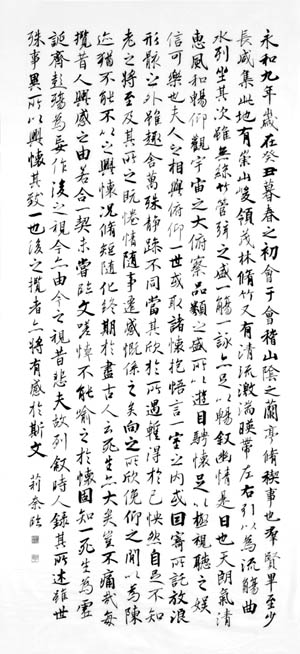 永和九年歲在癸丑暮春之初會于會稽山陰之蘭亭脩稧事也群賢畢至少
長咸集此地有崇山峻領茂林脩竹又有清流激湍暎帶左右引以為流觴曲
水列坐其次雖無絲竹管弦之盛一觴一詠亦足以暢敘幽情是日也天朗氣清
惠風和暢仰觀宇宙之大俯察品類之盛所以遊目騁懷足以極視聽之娛
信可樂也夫人之相與俯仰一世或取諸懷抱悟言一室之內或因寄所託放浪
形骸之外雖趣舍萬殊靜躁不同當其欣於所遇蹔得於己怏然自足不知
老之將至及其所之既惓情隨事遷感慨係之矣向之所欣俛仰之閒以為陳
迹猶不能不以之興懷況脩短隨化終期於盡古人云死生亦大矣豈不痛哉每
攬昔人興感之由若合一契未嘗臨文嗟悼不能喻之於懷固知一死生為虛
誕齊彭殤為妄作後之視今亦由今之視昔悲夫故列敘時人錄其所述雖世
殊事異所以興懷其致一也後之攬者亦將有感於斯文 莉奈臨